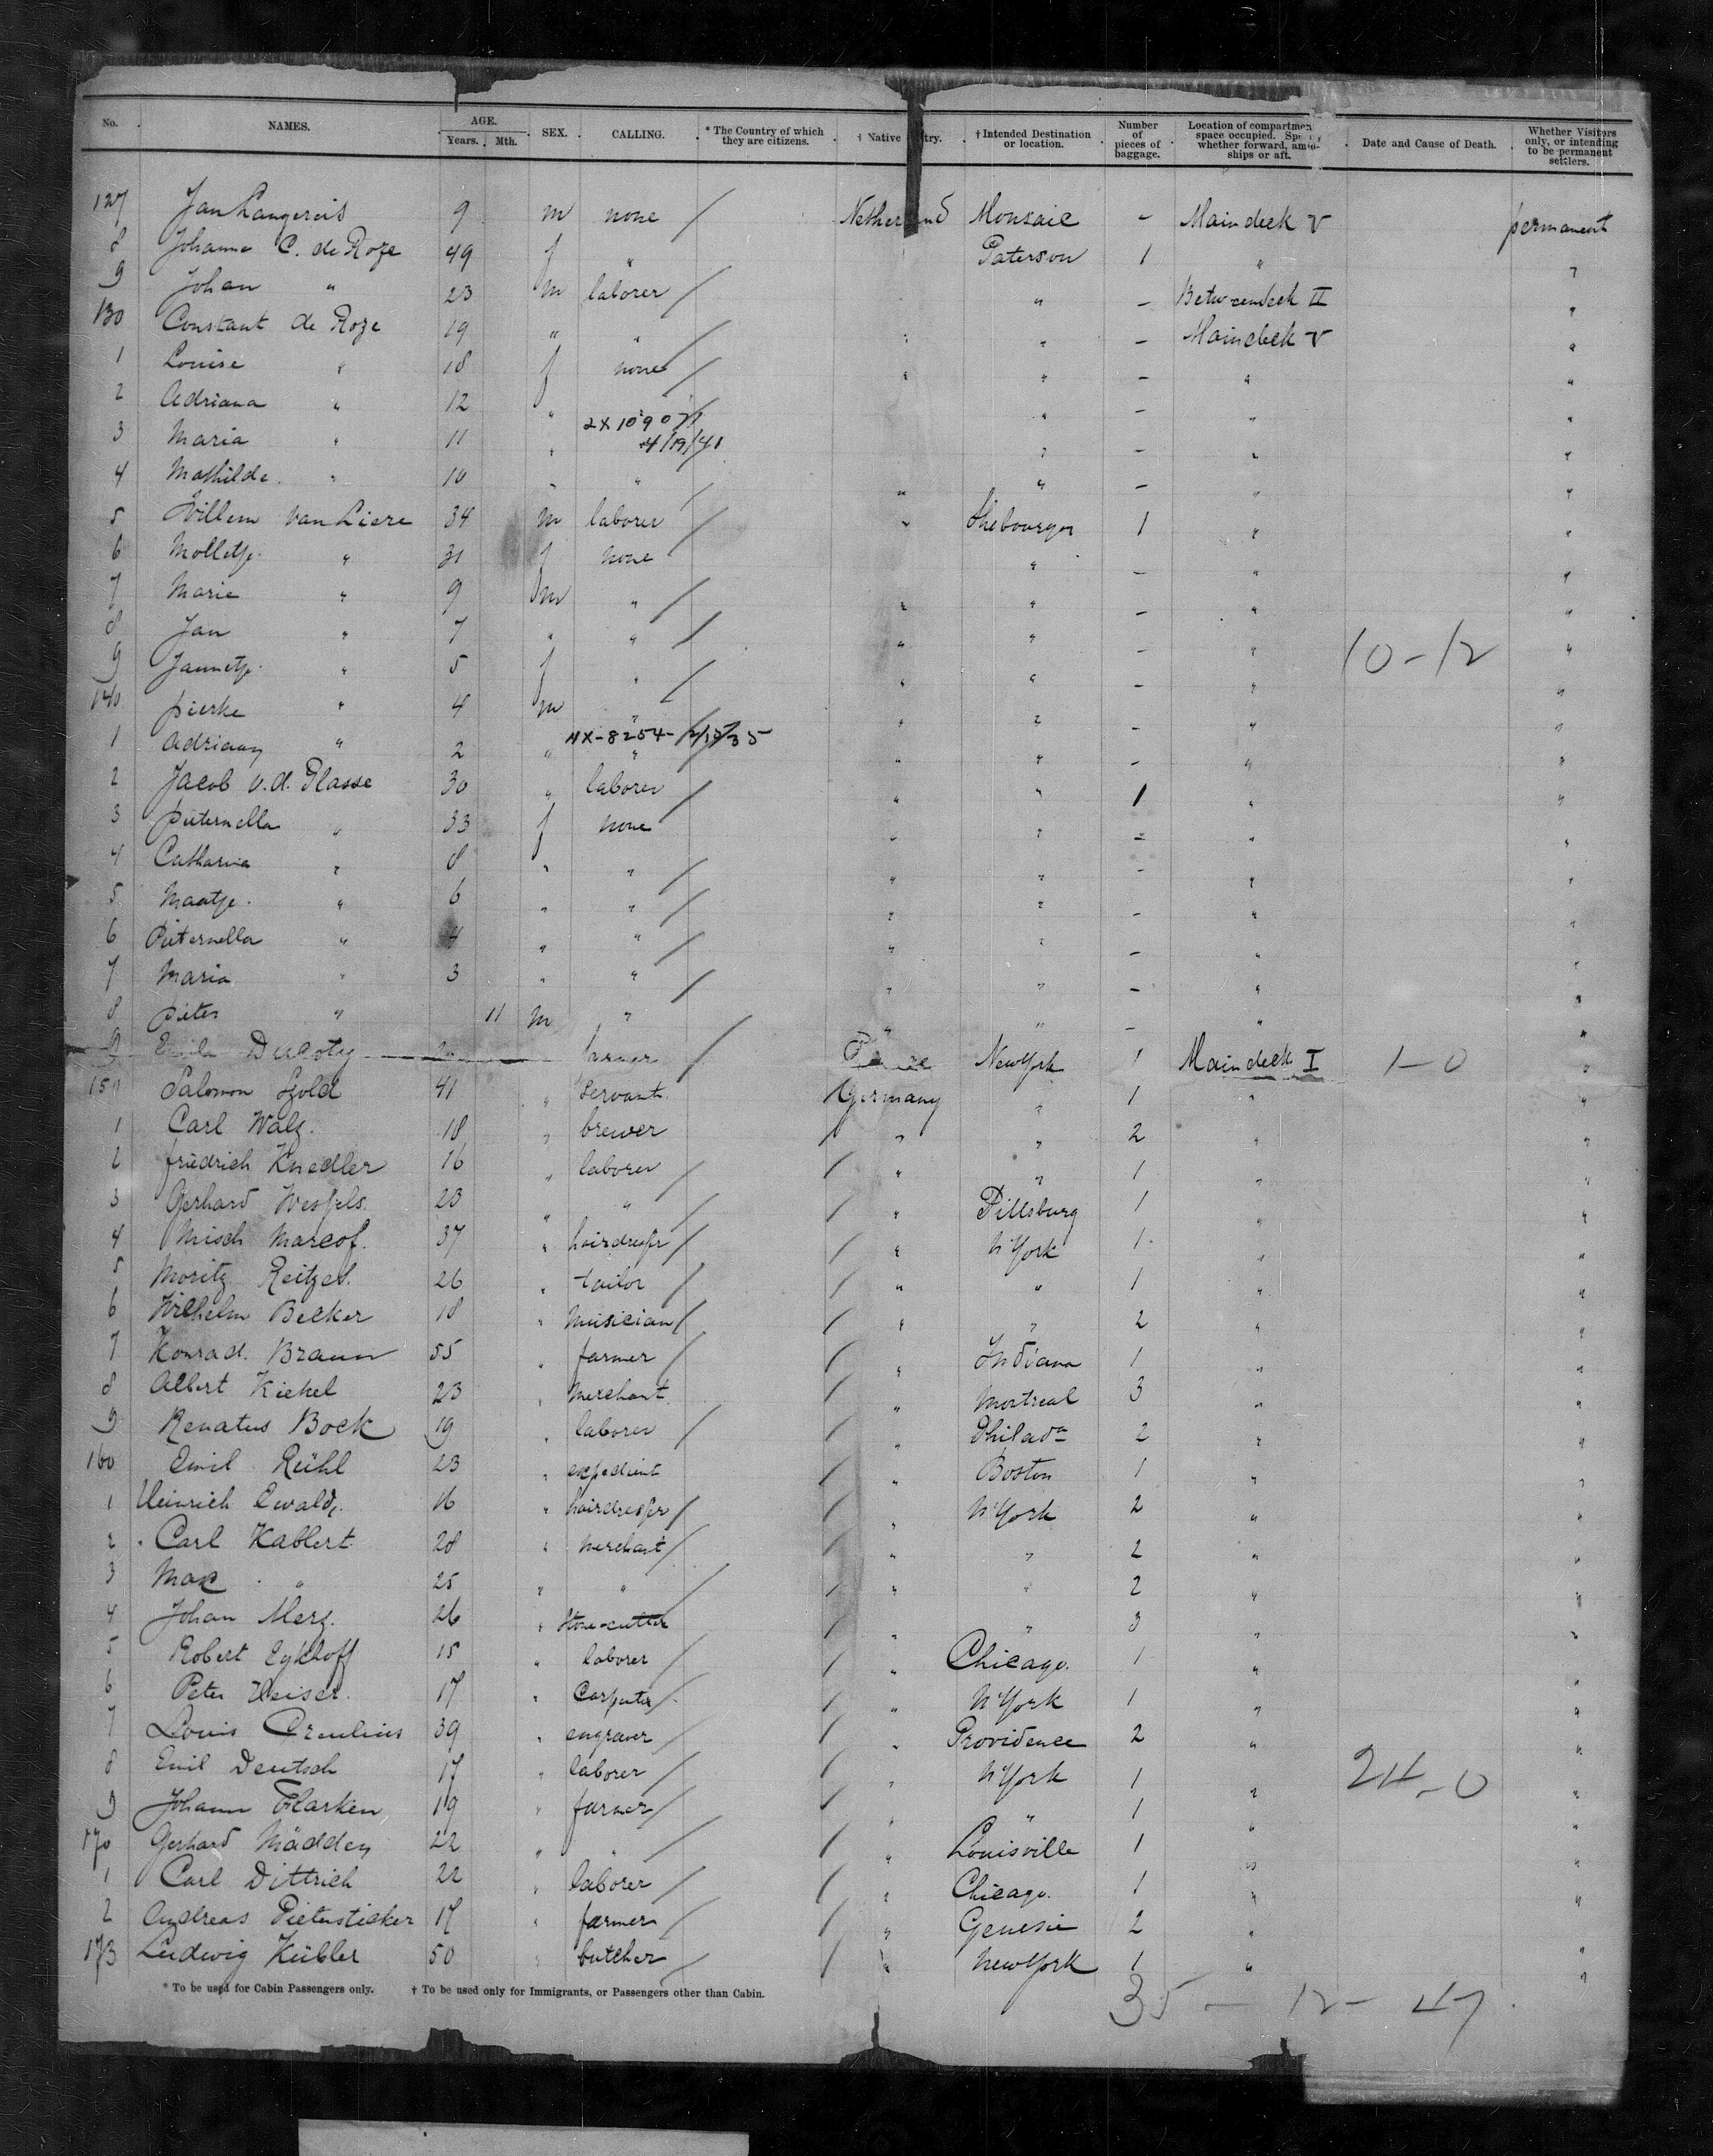 No. NAMES. AGE. Years. Mth. SEX. CALLING. * The Country of which they are citizens. † Native try. † Intended Destination or location. Number of pieces of baggage. Location of compartmen space occupied. whether forward, amid-ships or aft. Date and Cause of Death. Whether Visitors only, or intending to be permanent settlers.
127 Jan Langereis 9 m none / Nether nd Monsaic - Maindeck V permanent
8 Johanna C. de Roze 49 f " Paterson 1 " "
9 Johan " 23 m laborer / " - Betweendeck II "
130 Constant de Roze 19 " " / " " - Maindeck V "
1 Louise " 18 f none / " " - " "
2 Adriana " 12 " 2X 10907 " - " "
3 Maria " 11 " 4/19/41 " - " "
4 Mathilde " 10 " " / " " - " "
5 Willem van Liere 34 m laborer / " Shebourgon 1 " "
6 Molletje " 31 f none " - " "
7 Marie " 9 m " / " " - " "
8 Jan " 7 " " / " " - " 10-12 "
9 Jannetje " 5 f " / " " - " "
140 pierke " 4 m " " " - " "
1 Adriaan " 2 " 4X-8254- 35 " " " - " "
2 Jacob v.d. Plasse 30 " laborer / " " 1 " "
3 pieternella " 33 f none " " - " "
4 Catharina " 8 " " / " " - " "
5 Maatje " 6 " " / " " - " "
6 Pieternella " 4 " " / " " - " "
7 Maria " 3 " " / " " - " "
8 pieter " 11 m " " " - " "
9 Ducoty farmer / New York 1 Maindeck I 1-0 "
150 Salomon Szold 41 " Servant Germany " 1 " "
1 Carl Walz 18 " brewer / " " 2 " "
2 friedrich Knedler 16 " laborer / / " " 1 " "
3 Gerhard Wessels 23 " " / / " Pittsburg 1 " "
4 Misch Marcof. 37 " hairdresser / / " N'York 1 " "
5 Moritz Reitzes. 26 " tailor / / " " 1 " "
6 Wilhelm Becker 18 " Musician / / " " 2 " "
7 Konrad Braun 55 " farmer / / " Indiana 1 " "
8 Albert Kickel 23 " Merchant / " Montreal 3 " "
9 Renatus Bock 19 " laborer / " Philada 2 " "
160 Emil Rühl 23 " expedient / " Boston 1 " "
1 Heinrich Ewald 16 " hairdresser / / " N'York 2 " "
2 Carl Kablert 28 " Merchant / / " " 2 " "
3 Max " 25 " " / / " " 2 " "
4 Johan Merz. 26 " Stone-cutter / " " 3 " "
5 Robert Eykhoff 15 " laborer / / " Chicago. 1 " "
6 Peter Heiser. 17 " Carpenter / / " N'York 1 " "
7 Louis 39 " engraver / / " Providence 2 " "
8 Emil Deutsch 17 " laborer / / " N'York 1 " 24-0 "
9 Johann Flarken 19 " farmer / / " " 1 " "
170 Gerhard Mädden 22 " " / / " Louisville 1 " "
1 Carl Dittrich 22 " laborer / / " Chicago. 1 " "
2 Andreas Pietersticker 17 " farmer / / " 2 " "
173 Ludwig Kübler 50 " butcher / / " New York 1 " "
* To be used for Cabin Passengers only. † To be used only for Immigrants, or Passengers other than Cabin.
35 - 12 - 47